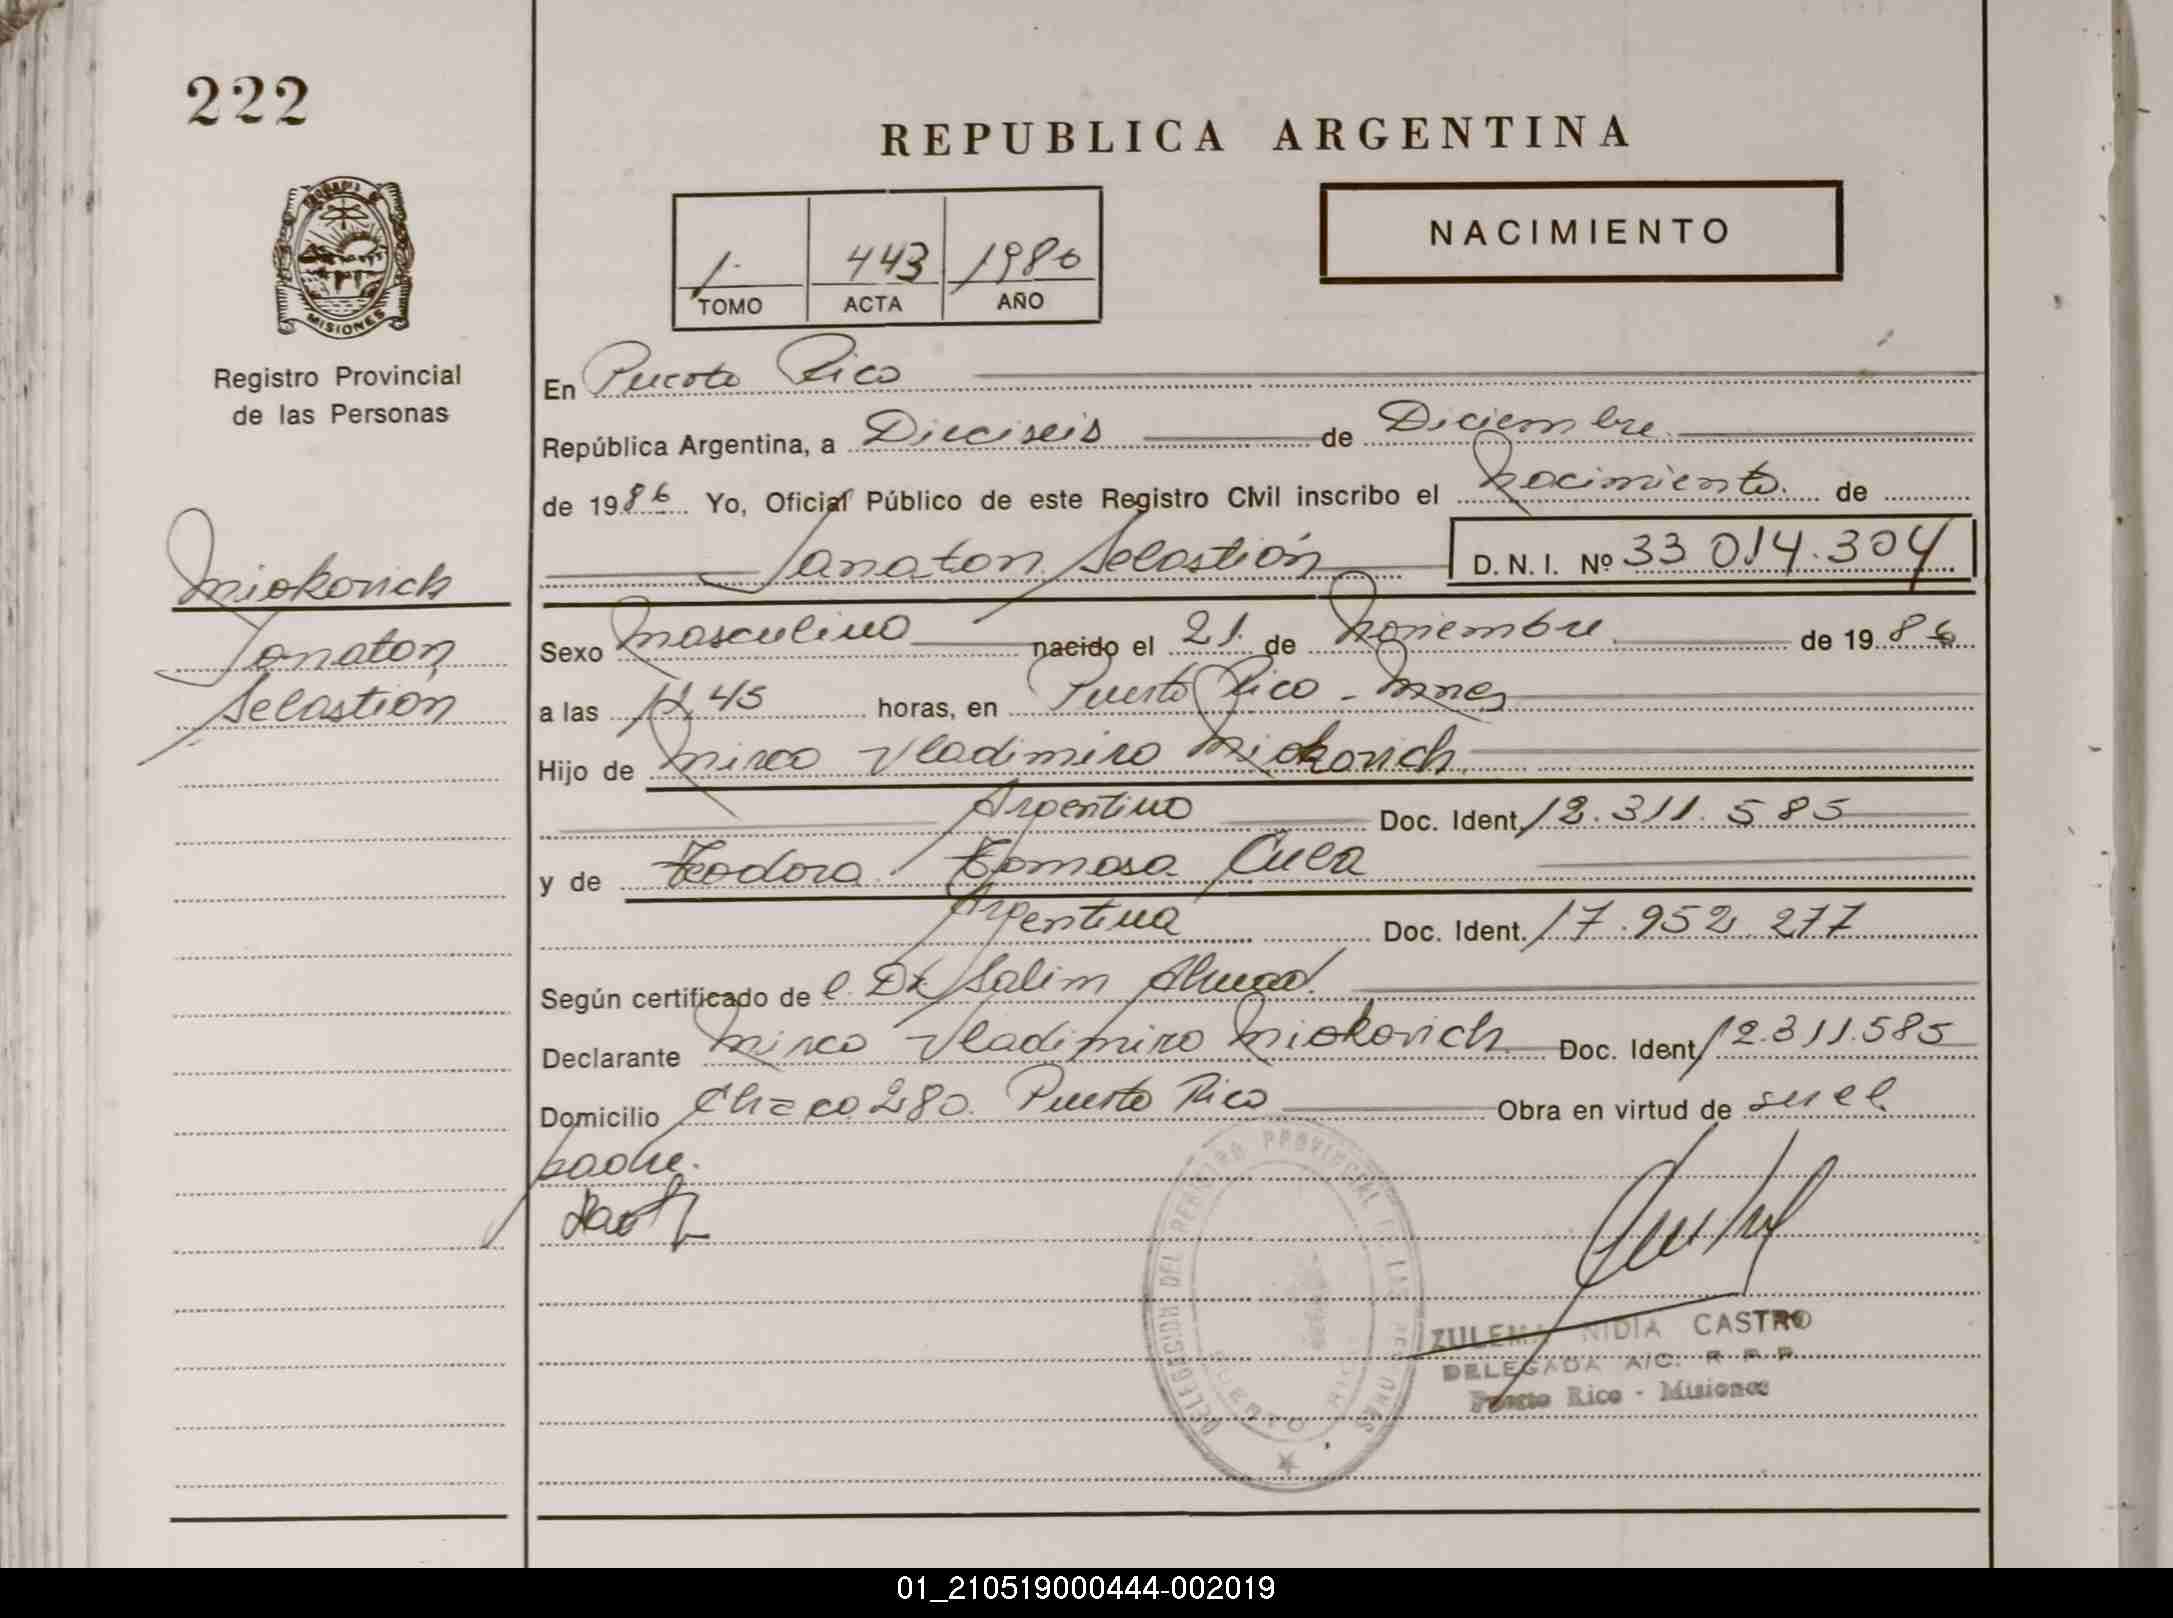 222
REPUBLICA ARGENTINA
PROVINCIA DE
MISIONES
Registro Provincial
de las Personas
NACIMIENTO
1. 443 1986
TOMO ACTA AÑO
En Puerto Rico
República Argentina, a Dieciseis de Diciembre
de 1986 Yo, Oficial Público de este Registro Civil inscribo el nacimiento de
Jonaton Sebastián D. N. I. Nº 33 014.304
Miokovich
Jonaton
Sebastián
Sexo masculino nacido el 21 de noviembre de 1986
a las 45 horas, en Puerto Rico - Mnes
Hijo de Mirco Vladimiro Miokovich
Argentino Doc. Ident. 12.311.585
y de Teodora Tomasa Cuba
Argentina Doc. Ident. 17.952.277
Según certificado de el Dr. Salim
Declarante Mirco Vladimiro Miokovich Doc. Ident. 12.311.585
Domicilio Chaco 280. Puerto Rico Obra en virtud de ser el
padre.
DELEGACION DEL REGISTRO PROVINCIAL DE LAS PERSONAS
PUERTO RICO
ZULEMA NIDIA CASTRO
DELEGADA A/C. R P P
Puerto Rico - Misiones
01_210519000444-002019